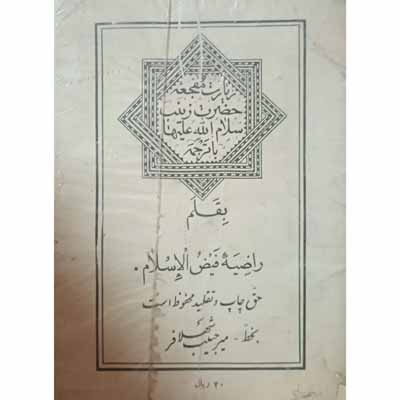 زیارت مفجعه
حضرت زینب
سلام الله علیها
با ترجمه
بقلم
راضیه فیض الإسلام.
حق چاپ و تقلید محفوظ است
بخط - میر حبیب شهلافر
۲۰ ریال